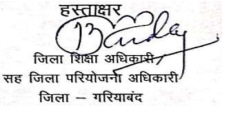 हस्ताक्षर
जिला शिक्षा अधिकारी
सह जिला परियोजना अधिकारी
जिला – गरियाबंद